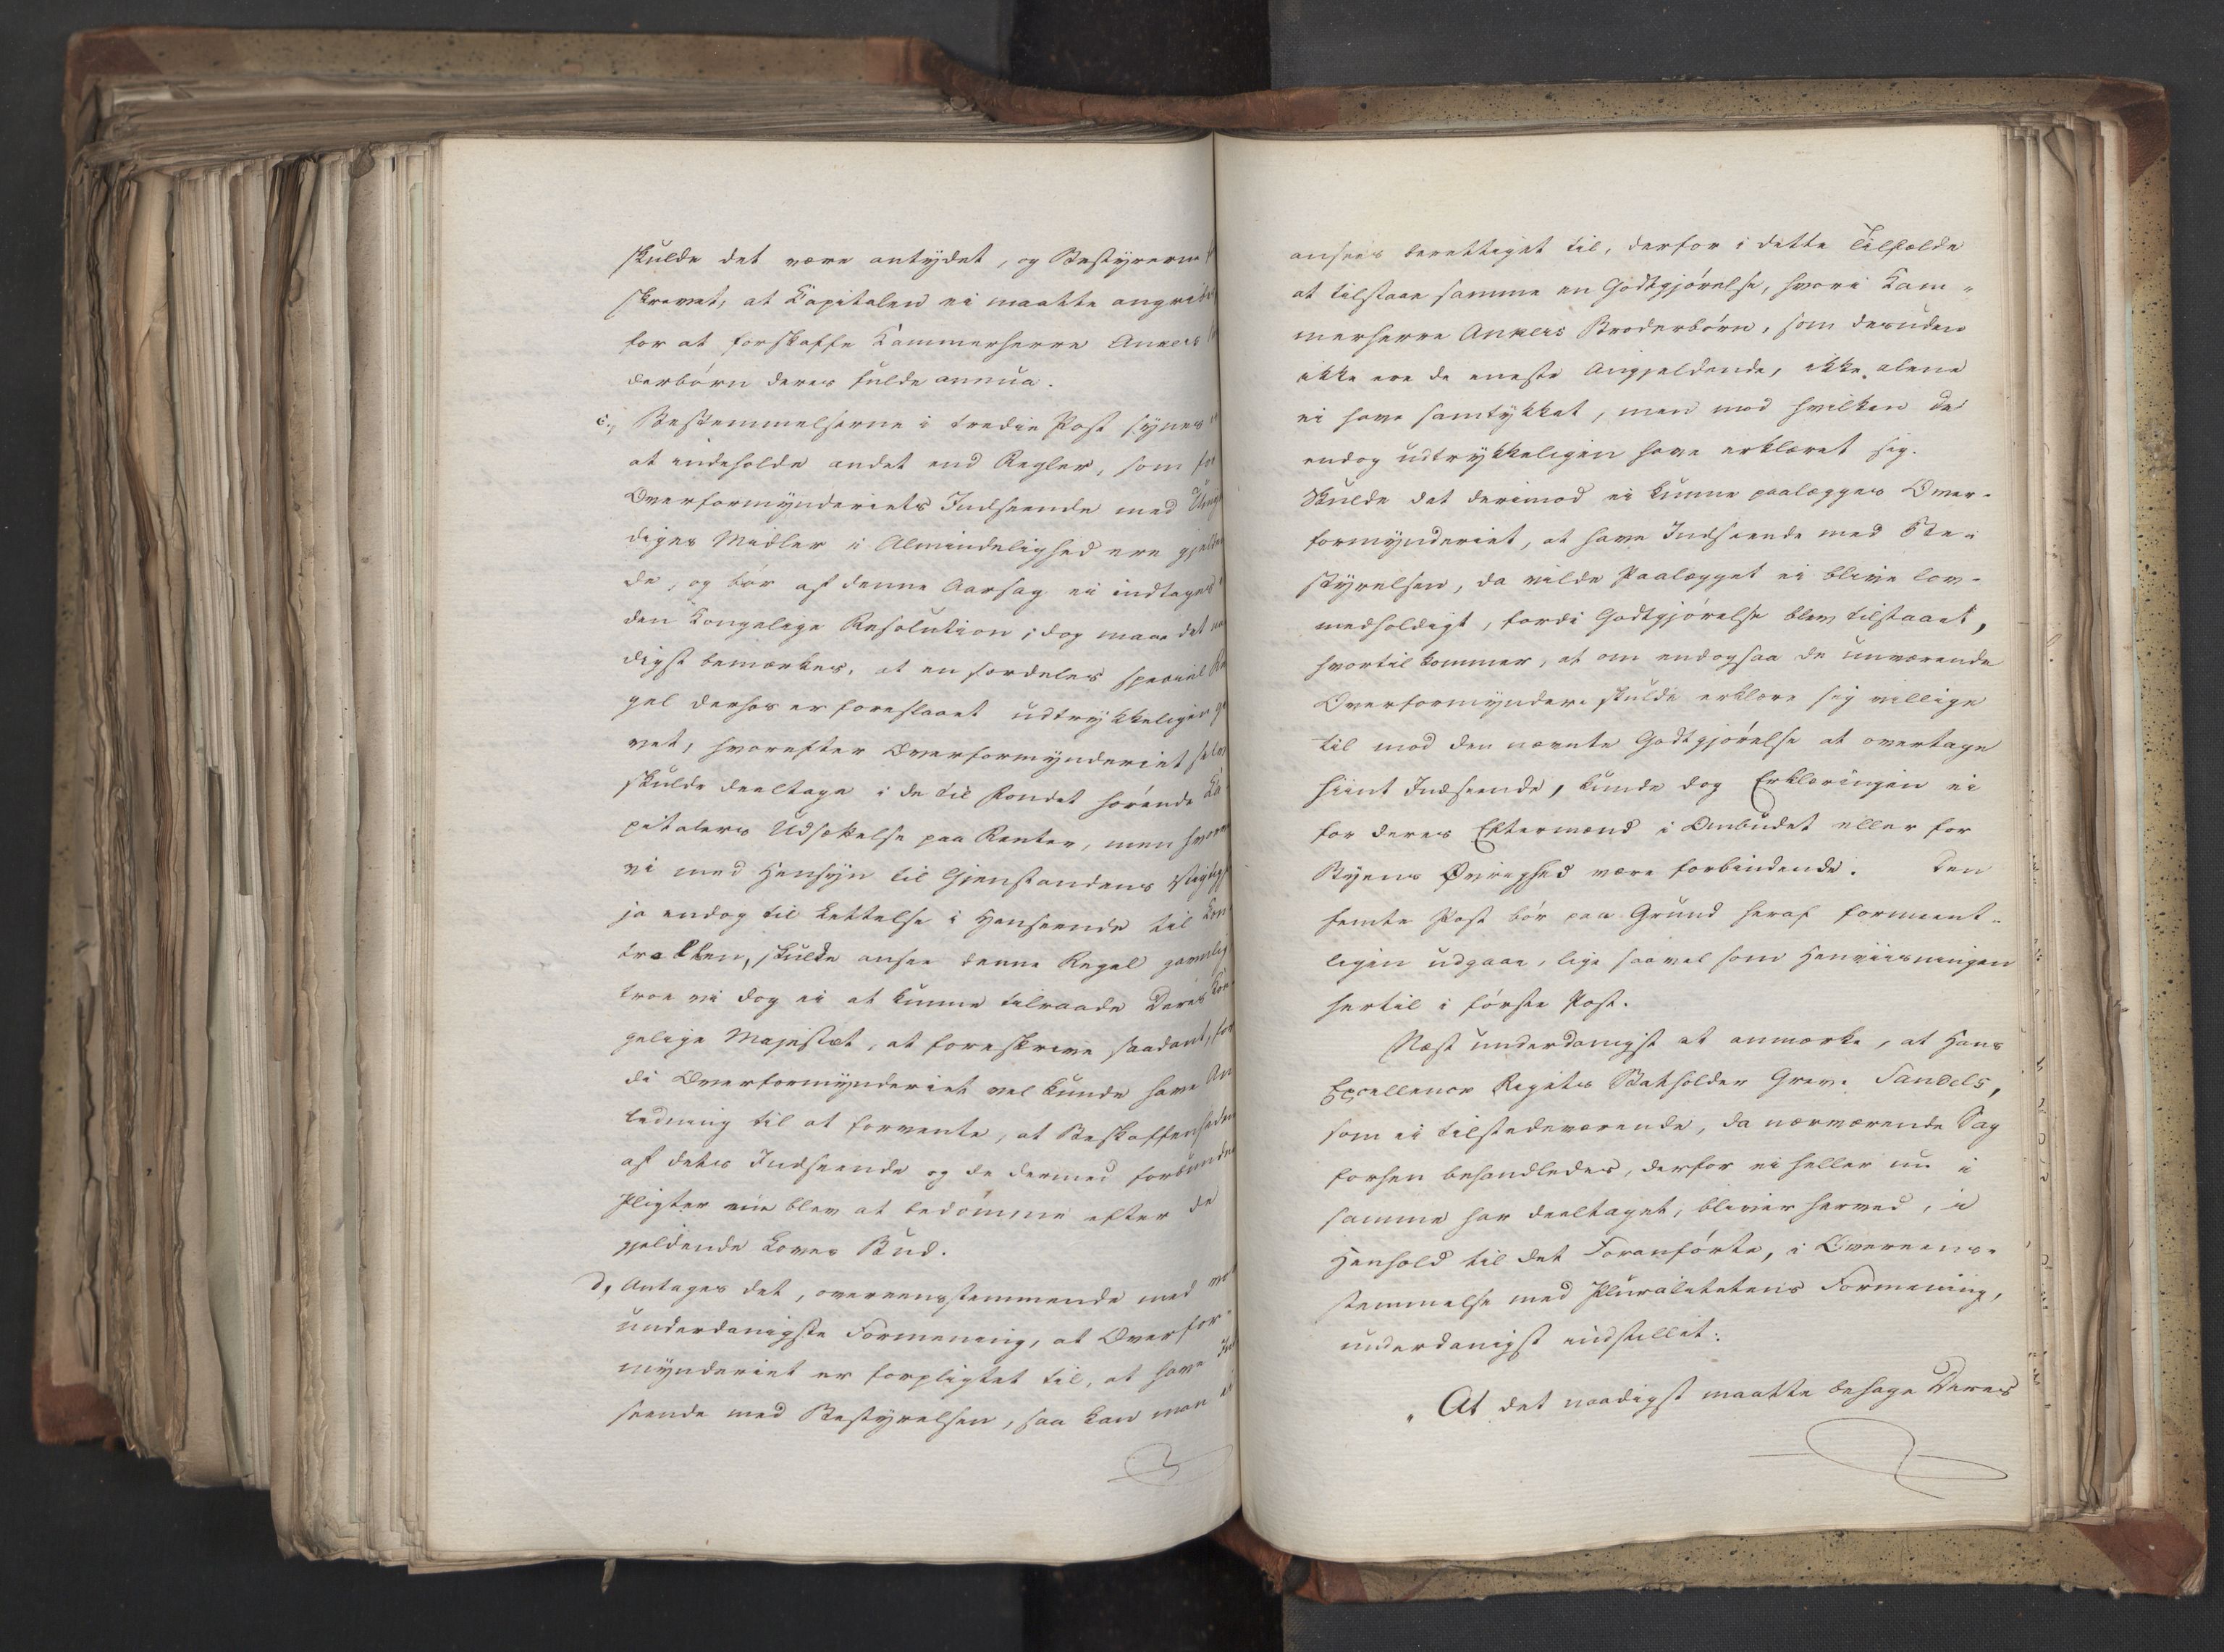 skulde det være antydet, og Bestyrerne
skrevet, at Kapitalen ei maatte angribe
for at forskaffe Kammerherre Ankers
derbørn deres fulde annua.
c., Bestemmelserne i tredie Post synes
at indeholde andet end Regler, som for
Overformynderiets Indseende med Umyn
diges Midler i Almindelighed ere gjælden
de, og bør af denne Aarsag ei indtages i
den Kongelige Resolution; dog maae det naa
digst bemærkes, at en særdeles speciel Re
gel derhos er foreslaaet udtrykkeligen gi
vet, hvorefter Overformynderiet selv
skulde deeltage i de til Fondet hørende Ka
pitalers Udsættelse paa Renter, men hvor
vi med Hensyn til Gjenstandens Vigtigh
ja endog til Lettelse i Henseende til Kon
trollen, skulde ansee denne Regel gavnlig
troe vi dog ei at kunne tilraade Deres Kon
gelige Majestæt, at foreskrive saadant, for
di Overformynderiet vel kunde have An
ledning til at formente, at Beskaffenheden
af dets Indseende og de dermed forbundne
Pligter ei blev at bedømme efter de
gjeldende Loves Bud.
d, Antages det, overeensstemmende med vor
underdanigste Formening, at Overfor
mynderiet er forpligtet til, at have Ind
seende med Bestyrelsen, saa kan man ei
ansees berettiget til, derfor i dette Tilfælde
at tilstaae samme en Godtgjørelse, hvori Kam-
merherre Ankers Broderbørn, som desuden
ikke ere de eneste Angjeldende, ikke alene
ei have samtykket, men mod hvilken de
endog udtrykkeligen have erklæret sig.
Skulde det derimod ei kunne paalægges Over-
formynderiet, at have Indseende med Be-
styrelsen, da vilde Paalægget ei blive lov-
medholdigt, fordi Godtgjørelse blev tilstaaet,
hvortil kommer, at om endogsaa de nuværende
Overformyndere skulde erklære sig villige
til mod den nævnte Godtgjørelse at overtage
hiint Indseende, kunde dog Erklæringen ei
for deres Eftermænd i Ombudet eller for
Byens Øvrighed være forbindende. Den
femte Post bør paa Grund heraf forment-
ligen udgaae, lige saavel som Henviisningen
hertil i første Post.
Næst underdanigst at anmærke, at Hans
Excellence Rigets Statholder Greve Sandels,
som ei tilstedeværende, da nærværende Sag
forhen behandledes, derfor ei heller nu i
samme har deeltaget, bliver herved, i
Henhold til det Foranførte, i Overeens-
stemmelse med Pluralitetens Formening,
underdanigst indstillet:
"At det naadigst maatte behage Deres